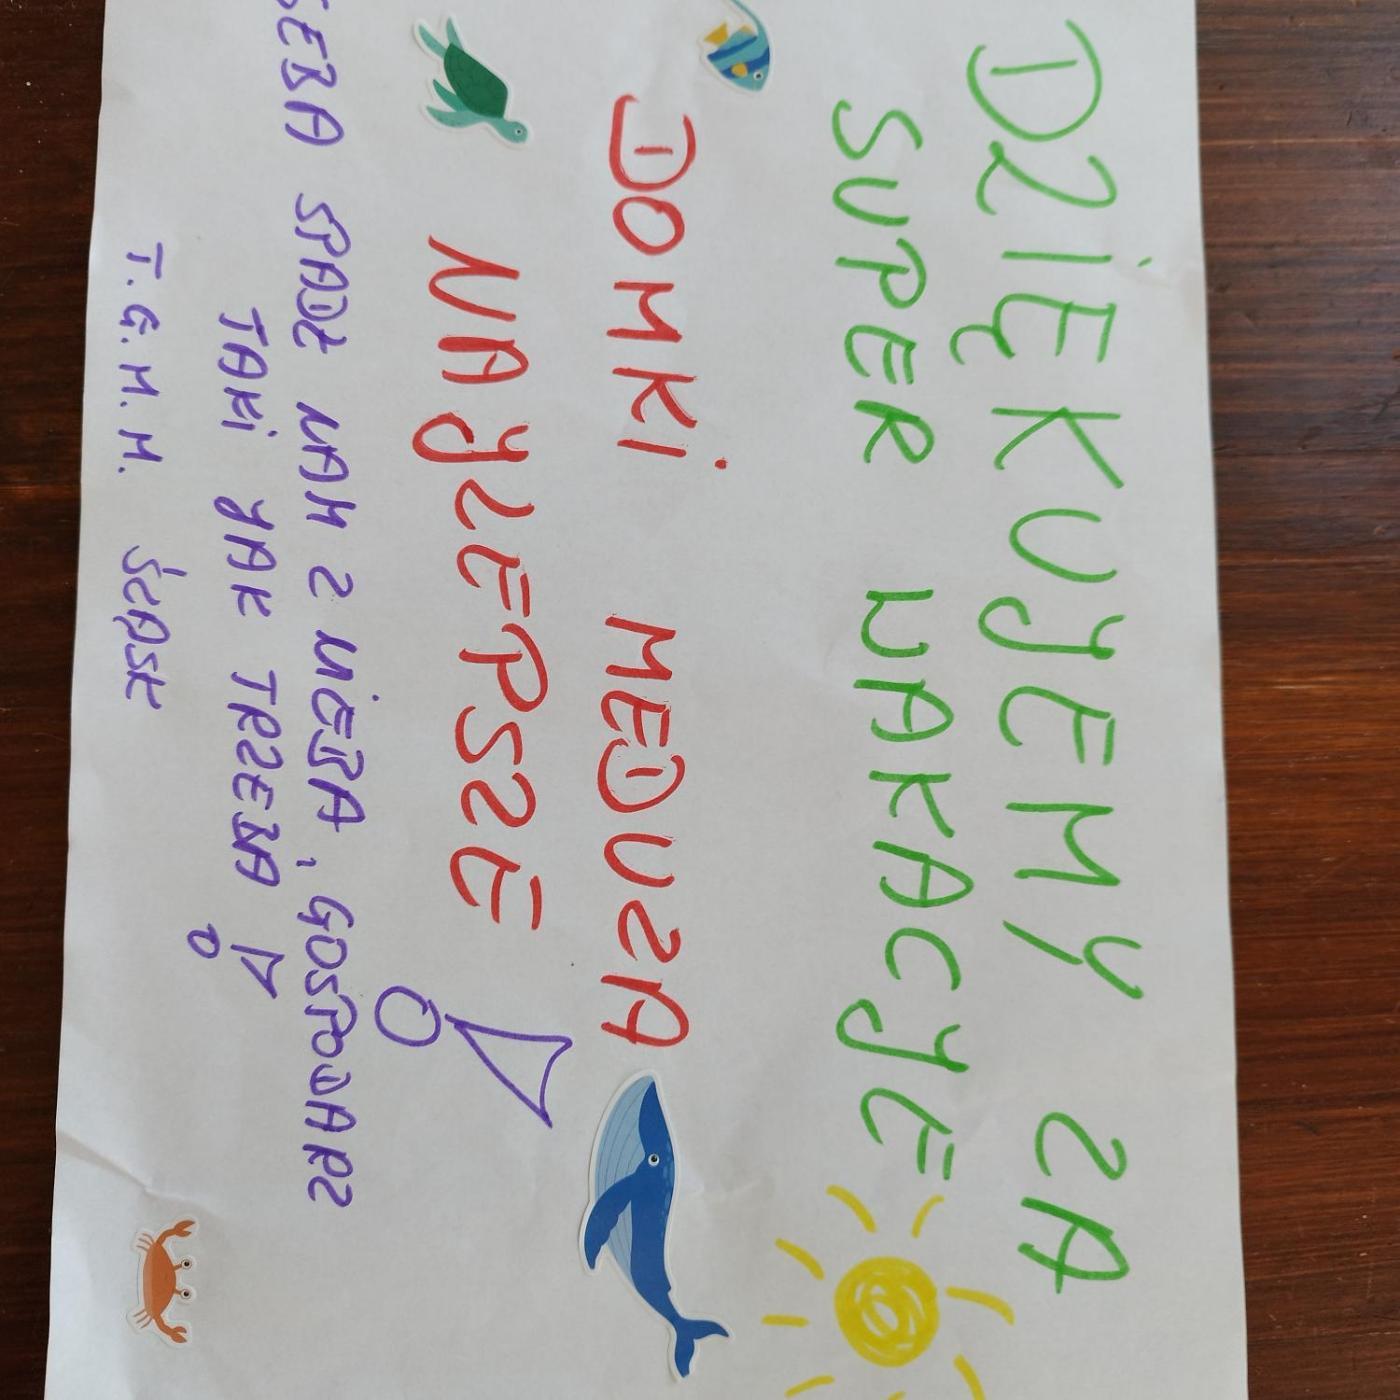 DZIĘKUJEMY ZA
SUPER WAKACJE
DOMKI MEDUZA
NAJLEPSZE!
SEBA SPADŁ NAM Z NIEBA, GOSPODARZ
TAKI JAK TRZEBA!
T.G.M.M. ŚLĄSK